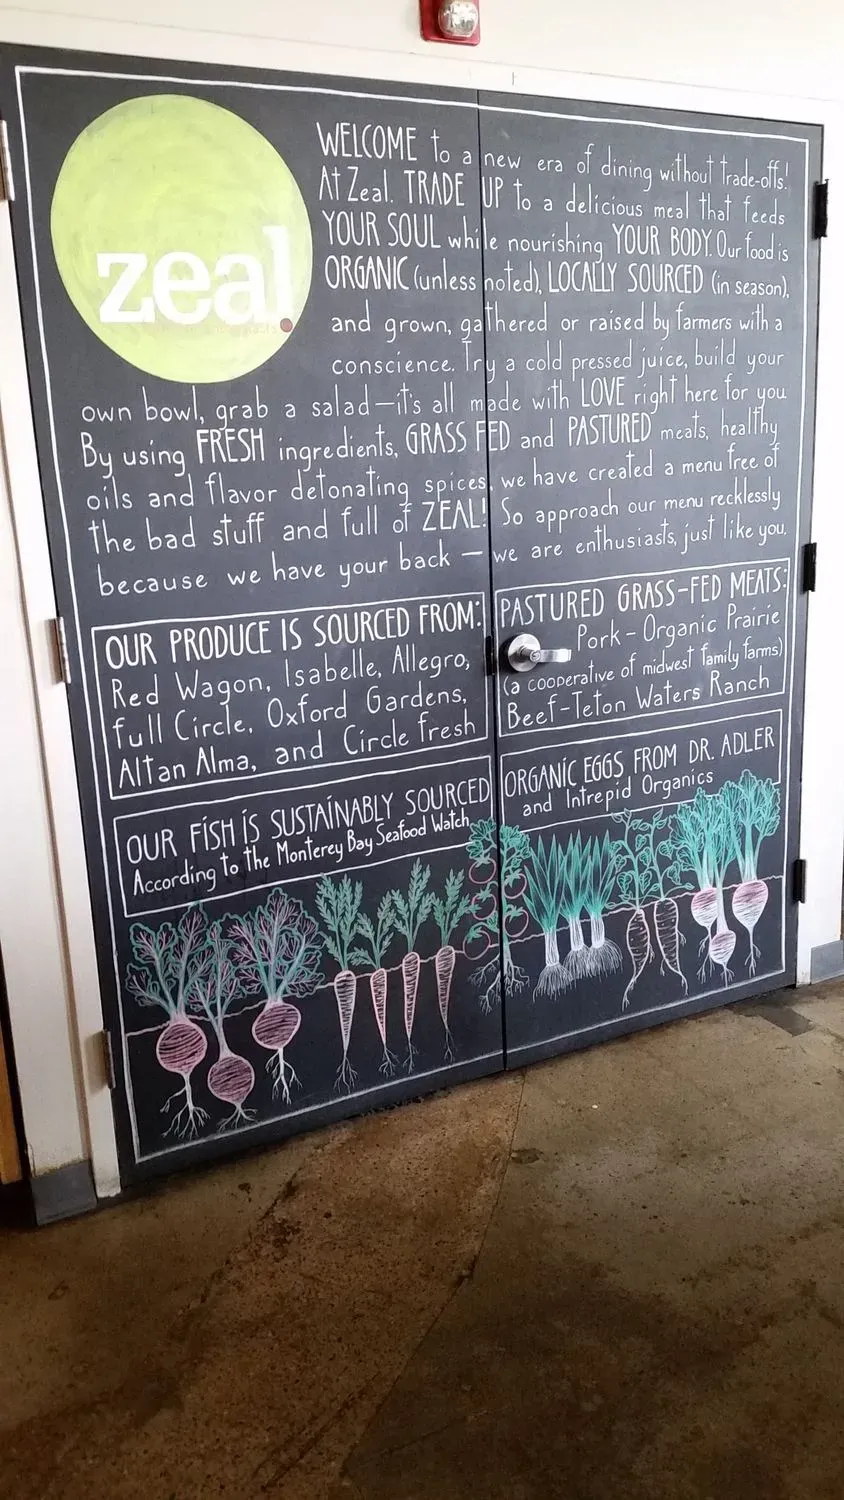 zeal.
WELCOME to a new era of dining without trade-offs!
At Zeal. TRADE UP to a delicious meal that feeds
YOUR SOUL while nourishing YOUR BODY. Our food is
ORGANIC (unless noted), LOCALLY SOURCED (in season),
and grown, gathered or raised by farmers with a
conscience. Try a cold pressed juice, build your
own bowl, grab a salad—it's all made with LOVE right here for you
By using FRESH ingredients, GRASS FED and PASTURED meats, healthy
oils and flavor detonating spices, we have created a menu free of
the bad stuff and full of ZEAL! So approach our menu recklessly
because we have your back — we are enthusiasts, just like you.
OUR PRODUCE IS SOURCED FROM:
Red Wagon, Isabelle, Allegro,
full Circle, Oxford Gardens,
Altan Alma, and Circle fresh
PASTURED GRASS-FED MEATS:
Pork - Organic Prairie
(a cooperative of midwest family farms)
Beef-Teton Waters Ranch
OUR FISH IS SUSTAINABLY SOURCED
According to the Monterey Bay Seafood Watch
ORGANIC EGGS FROM DR. ADLER
and Intrepid Organics